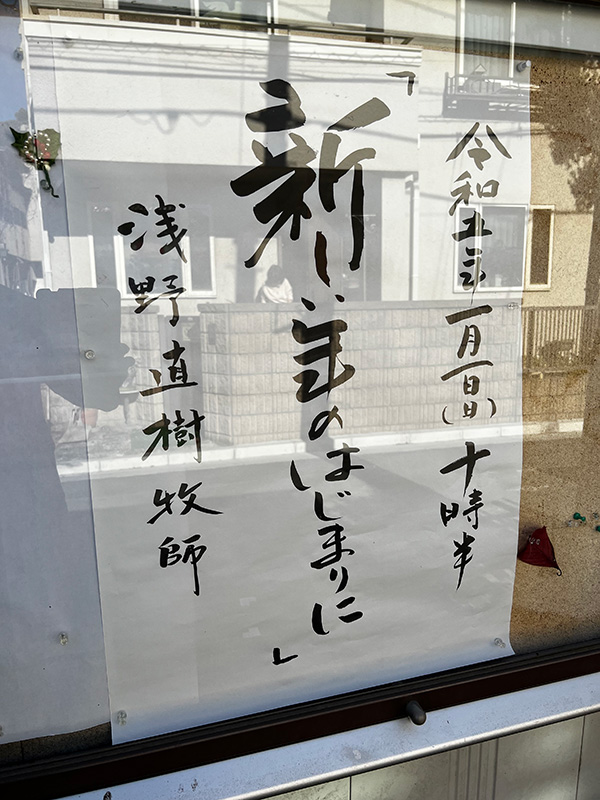 令和五年一月一日(日)十時半
「新しい年のはじまりに」
浅野直樹牧師